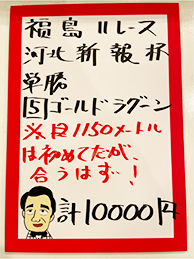 福島11レース
河北新報杯
単勝
5ゴールドラグーン
※ダ1150メートル
は初めてだが、
合うはず!
計10000円